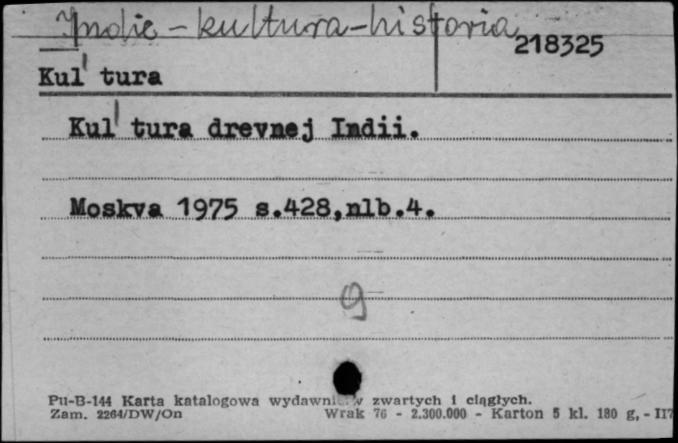 Indie - kultura - historia
218325
Kul'tura
Kul'tura drevnej Indii.
Moskva 1975 s.428,nlb.4.
9
Pu-B-144 Karta katalogowa wydawni w zwartych i ciągłych.
Zam. 2264/DW/On Wrak 76 - 2.300.000 - Karton 5 kl. 180 g, -